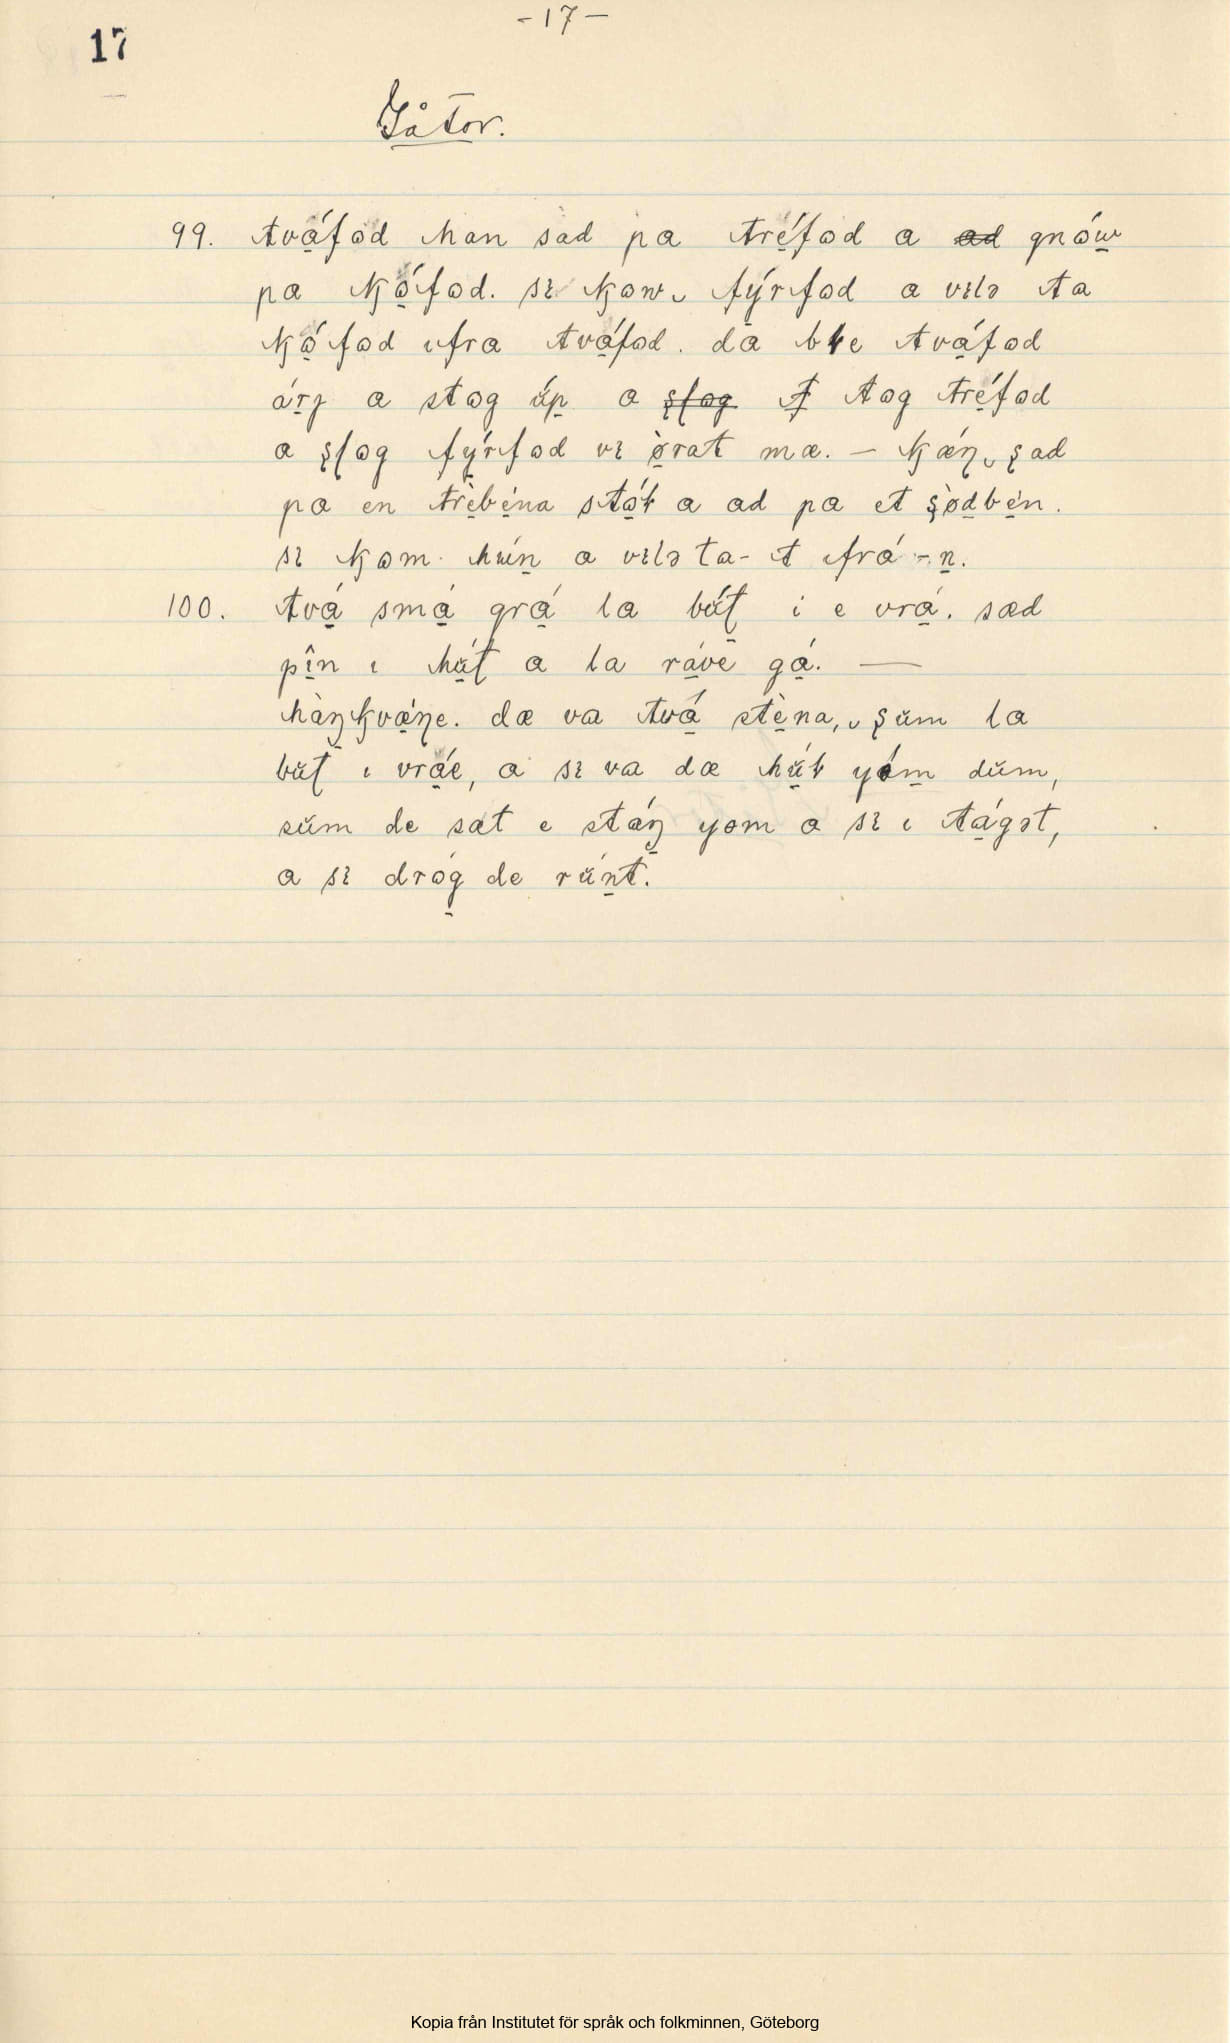 -17-
17
Gåtor.
99. tvá̱fɷd han sad pa tré̱fɷd a a̶d̶ gnó̱w
pa kɷ̱́fɷd. sɩ kɷw. fý̱rfɷd a vɩlə ta
kɷ̱́fɷd ɩfra tvá̱fɷd. da ble tvá̱fɷd
á̱rg a stɷg ú̱p a s̶l̶ɷ̶g̶ t̶ tɷg tré̱fɷd
a slɷg fý̱rfɷd vɩ ø̱̀rat mæ. — kǽŋ, sad
pa en trè̱bé̱na stó̱l a ad pa et sø̱̀dbé̱n.
sɩ kɷm húṉ a vɩlə ta-t frá-ṉ.
100. tvá̱ smá̱ grá̱ la bú̱t i e vrá̱. sæd
pî̱n ɩ hú̱t a la rá̱ve gá̱. —
hàŋkvǽ̱ŋe. dæ va tvá̱ stè̱na, sŭm la
bŭt ɩ vrá̱e, a sɩ va dæ hú̱l yó̱m dŭm,
sŭm de sat e stáŋ yom a sɩ ɩ tá̱gət,
a sɩ drɷ́g de rúṉt.
Kopia från Institutet för språk och folkminnen, Göteborg